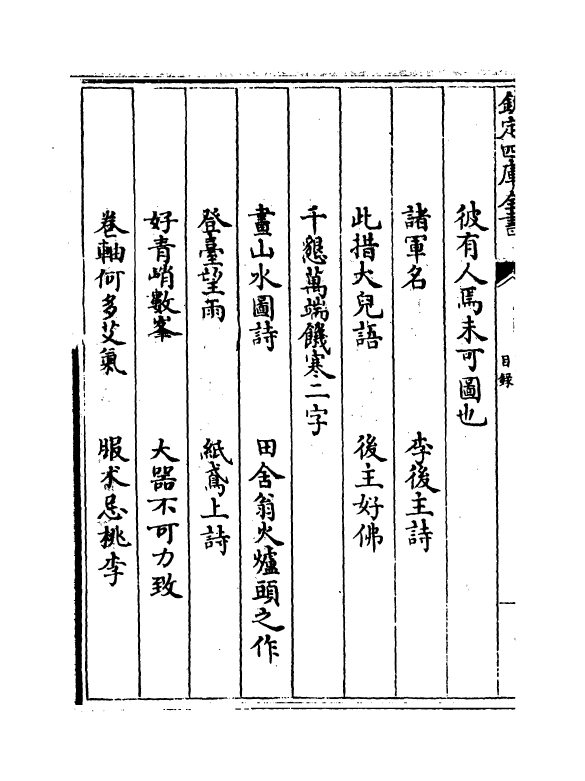 欽定四庫全書
目録
彼有人焉未可圖也
諸軍名　李後主詩
此措大兒語　後主好佛
千愁萬端饑寒二字
畫山水圖詩　田舍翁火爐頭之作
登臺望雨　紙鳶上詩
好青峭數峯　大器不可力致
卷軸何多艾氣　服朮忌桃李